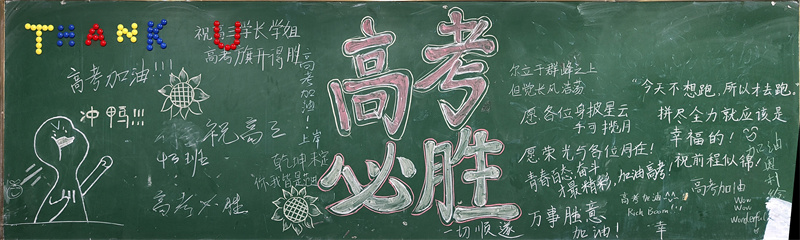 THANK U
祝高三学长学姐
高考旗开得胜
高考加油!!!
冲鸭!!!
高考加油!上岸
祝高三
43班
高考必胜
乾坤未定
高考
必胜
你立于群峰之上
愿各位身披星云
手可揽月
愿荣光与各位同在!
青春白态,奋斗
才最精彩,加油高考!
万事胜意
加油!
一切顺遂
“今天不想跑,所以才去跑。”
拼尽全力就应该是
幸福的!
祝前程似锦!
加油
高考加油
高考加油
Rich Boom!!!
Wow
Wow
Wonderful